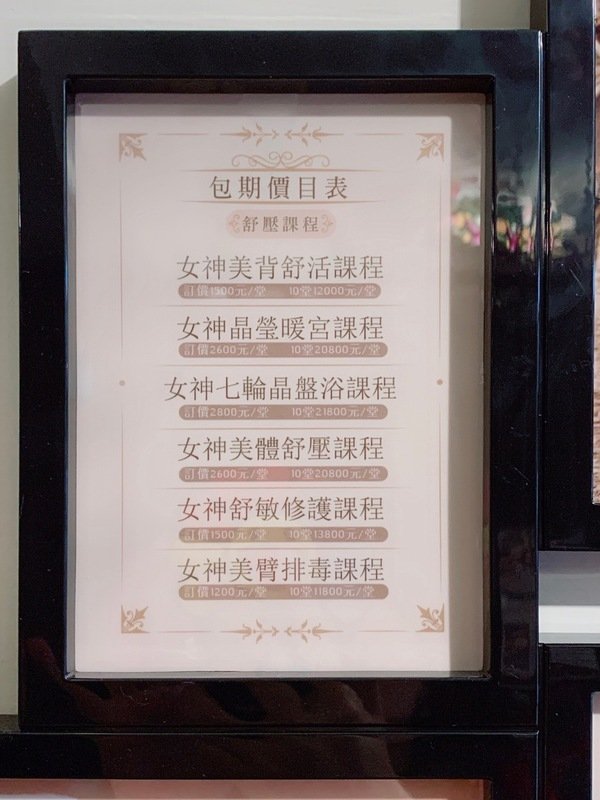 包期價目表
舒壓課程
女神美背舒活課程
訂價1500元/堂 10堂12000元/堂
女神晶瑩暖宮課程
訂價2600元/堂 10堂20800元/堂
女神七輪晶盤浴課程
訂價2800元/堂 10堂21800元/堂
女神美體舒壓課程
訂價2600元/堂 10堂20800元/堂
女神舒敏修護課程
訂價1500元/堂 10堂13800元/堂
女神美臂排毒課程
訂價1200元/堂 10堂11800元/堂